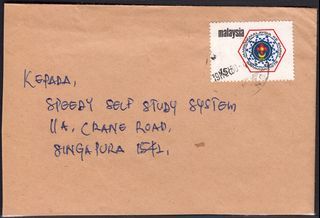 malaysia
15¢
KEPADA,
SPEEDY SELF STUDY SYSTEM
11A, CRANE ROAD,
SINGAPURA 1542,